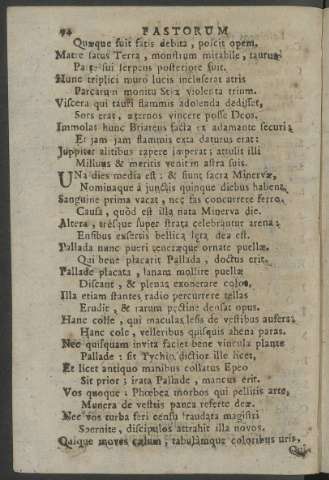 94 PASTORUM
Quæque fuit fatis debita, poſcit opem.
Matre ſatus Terra, monſtrum mirabile, taurus
Parte ſui ſerpens poſteriore fuit.
Hunc triplici muro lucis incluſerat atris
Parcarum monitu Styx violenta trium.
Viſcera qui tauri flammis adolenda dediſſet,
Sors erat, æternos vincere poſſe Deos.
Immolat hunc Briareus facta ex adamante ſecuri,
Et jam jam flammis exta daturus erat:
Juppiter alitibus rapere imperat; attulit illi
Milluus & meritis venit in aſtra ſuis.
UNa dies media eſt: & fiunt ſacra Minervæ,
Nominaque à junctis quinque diebus habent.
Sanguine prima vacat, nec fas concurrere ferro.
Cauſa, quòd eſt illa nata Minerva die.
Altera, trêſque ſuper ſtrata celebrantur arena:
Enſibus exſertis bellica læta dea eſt.
Pallada nunc pueri teneræque ornate puellæ.
Qui bene placarit Pallada, doctus erit.
Pallade placata, lanam mollire puellæ
Diſcant, & plenas exonerare colos.
Illa etiam ſtantes radio percurrere tellas
Erudit, & rarum pectine denſat opus.
Hanc cole, qui maculas læſis de veſtibus aufers:
Hanc cole, velleribus quiſquis ahena paras.
Nec quiſquam invita faciet bene vincula plantæ
Pallade: ſit Tychio doctior ille licet,
Et licet antiquo manibus collatus Epeo
Sit prior; irata Pallade, mancus erit.
Vos quoque: Phœbea morbos qui pellitis arte,
Munera de veſtris pauca referte deæ.
Nec vos turba feri cenſu fraudata magiſtri
Spernite, diſcipulos attrahit illa novos.
Quique moves cælum, tabulamque coloribus uris,
Qui-